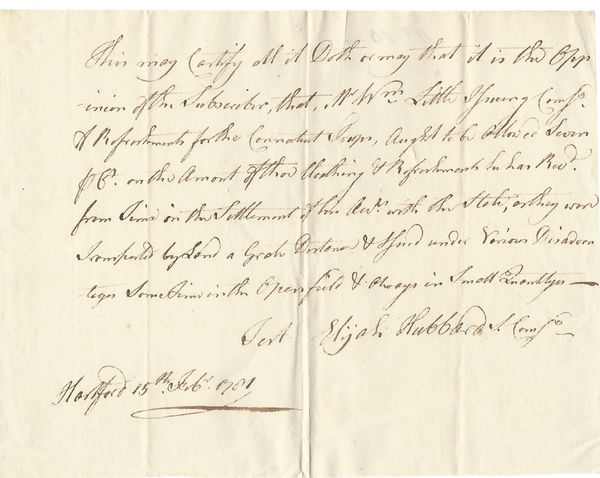 This may Certify all it Doth or may that it is the Opp
inion of the Subscriber, that, Mr. Wm. Little Issuing Comsy.
of Refreshments for the Connecticut Troops, Aught to be Allowed Seven
pr Ct. on the Amont of the Cloathing & Refreshments he has Recd.
from Time on the Settlement of his Acts. with the State, as they were
Transported by Land a Grate Distance & Issued under Various Disadvan
tages Sometimes in the Open field & Always in Small Quantitys —
Test Elijah Hubbard S. Comsy.
Hartford 15th Feby. 1781